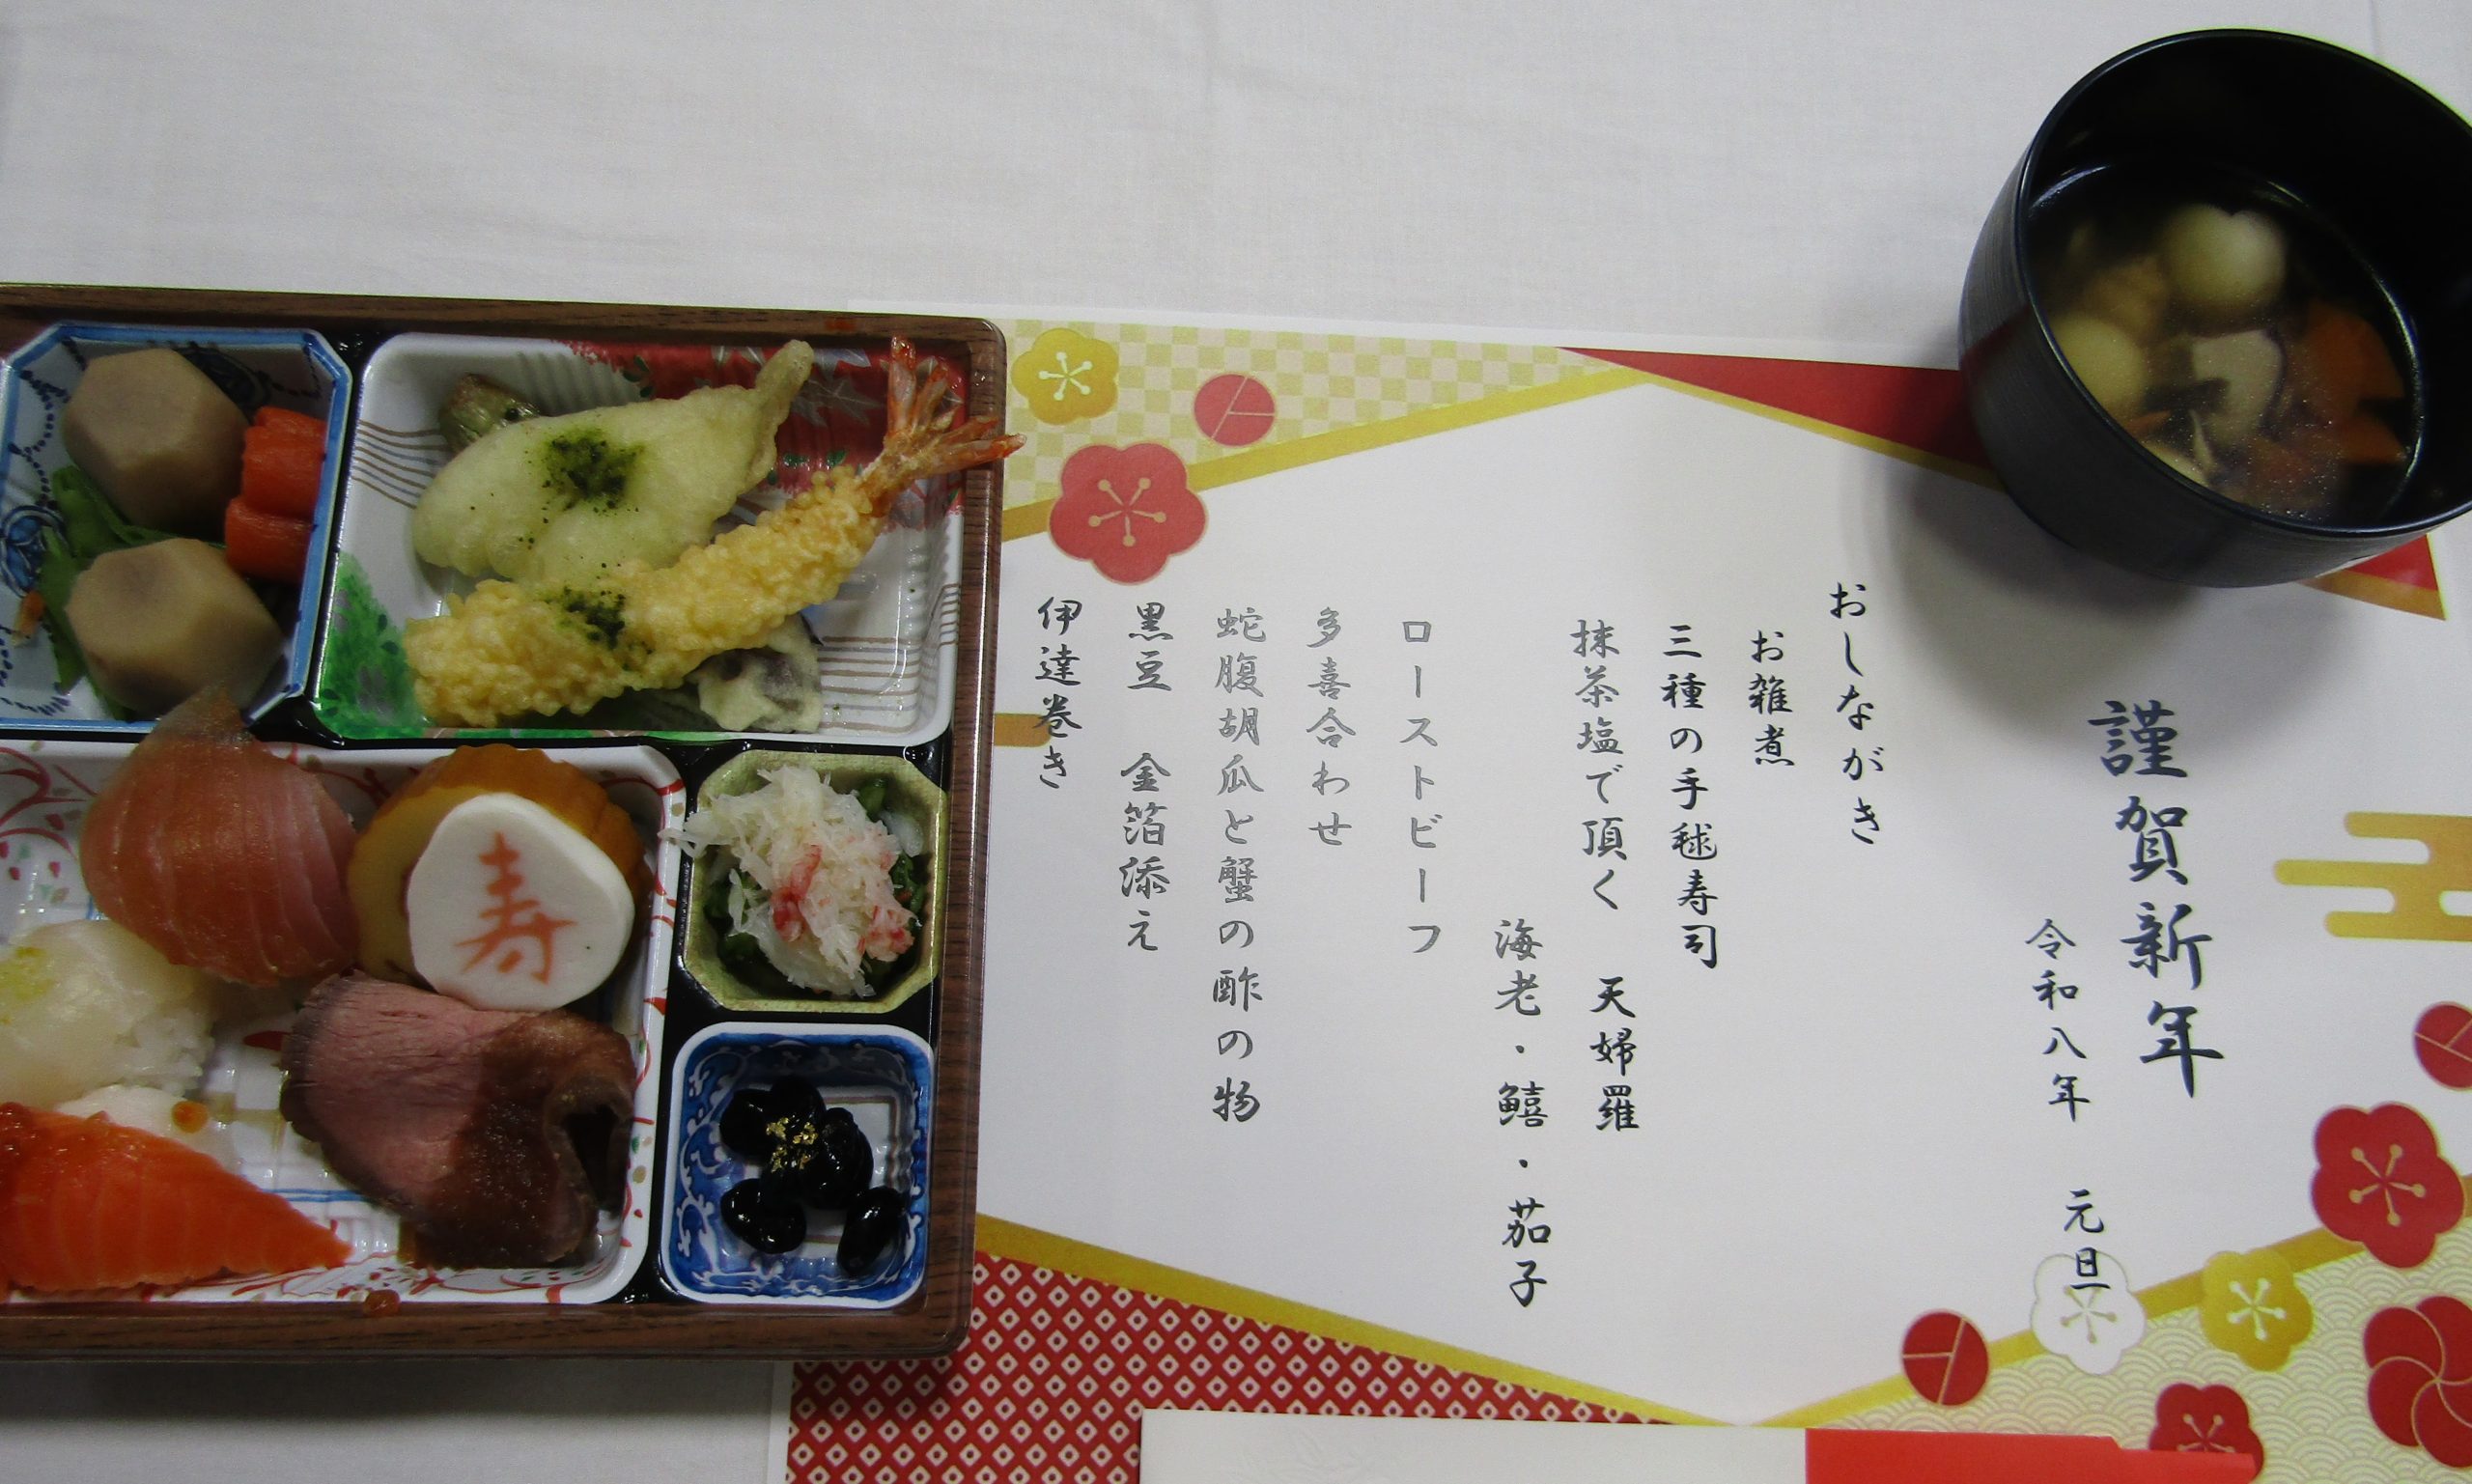 謹賀新年
令和八年　元旦
おしながき
お雑煮
三種の手毬寿司
抹茶塩で頂く　天婦羅
海老・鱚・茄子
ローストビーフ
多喜合わせ
蛇腹胡瓜と蟹の酢の物
黒豆　金箔添え
伊達巻き
寿